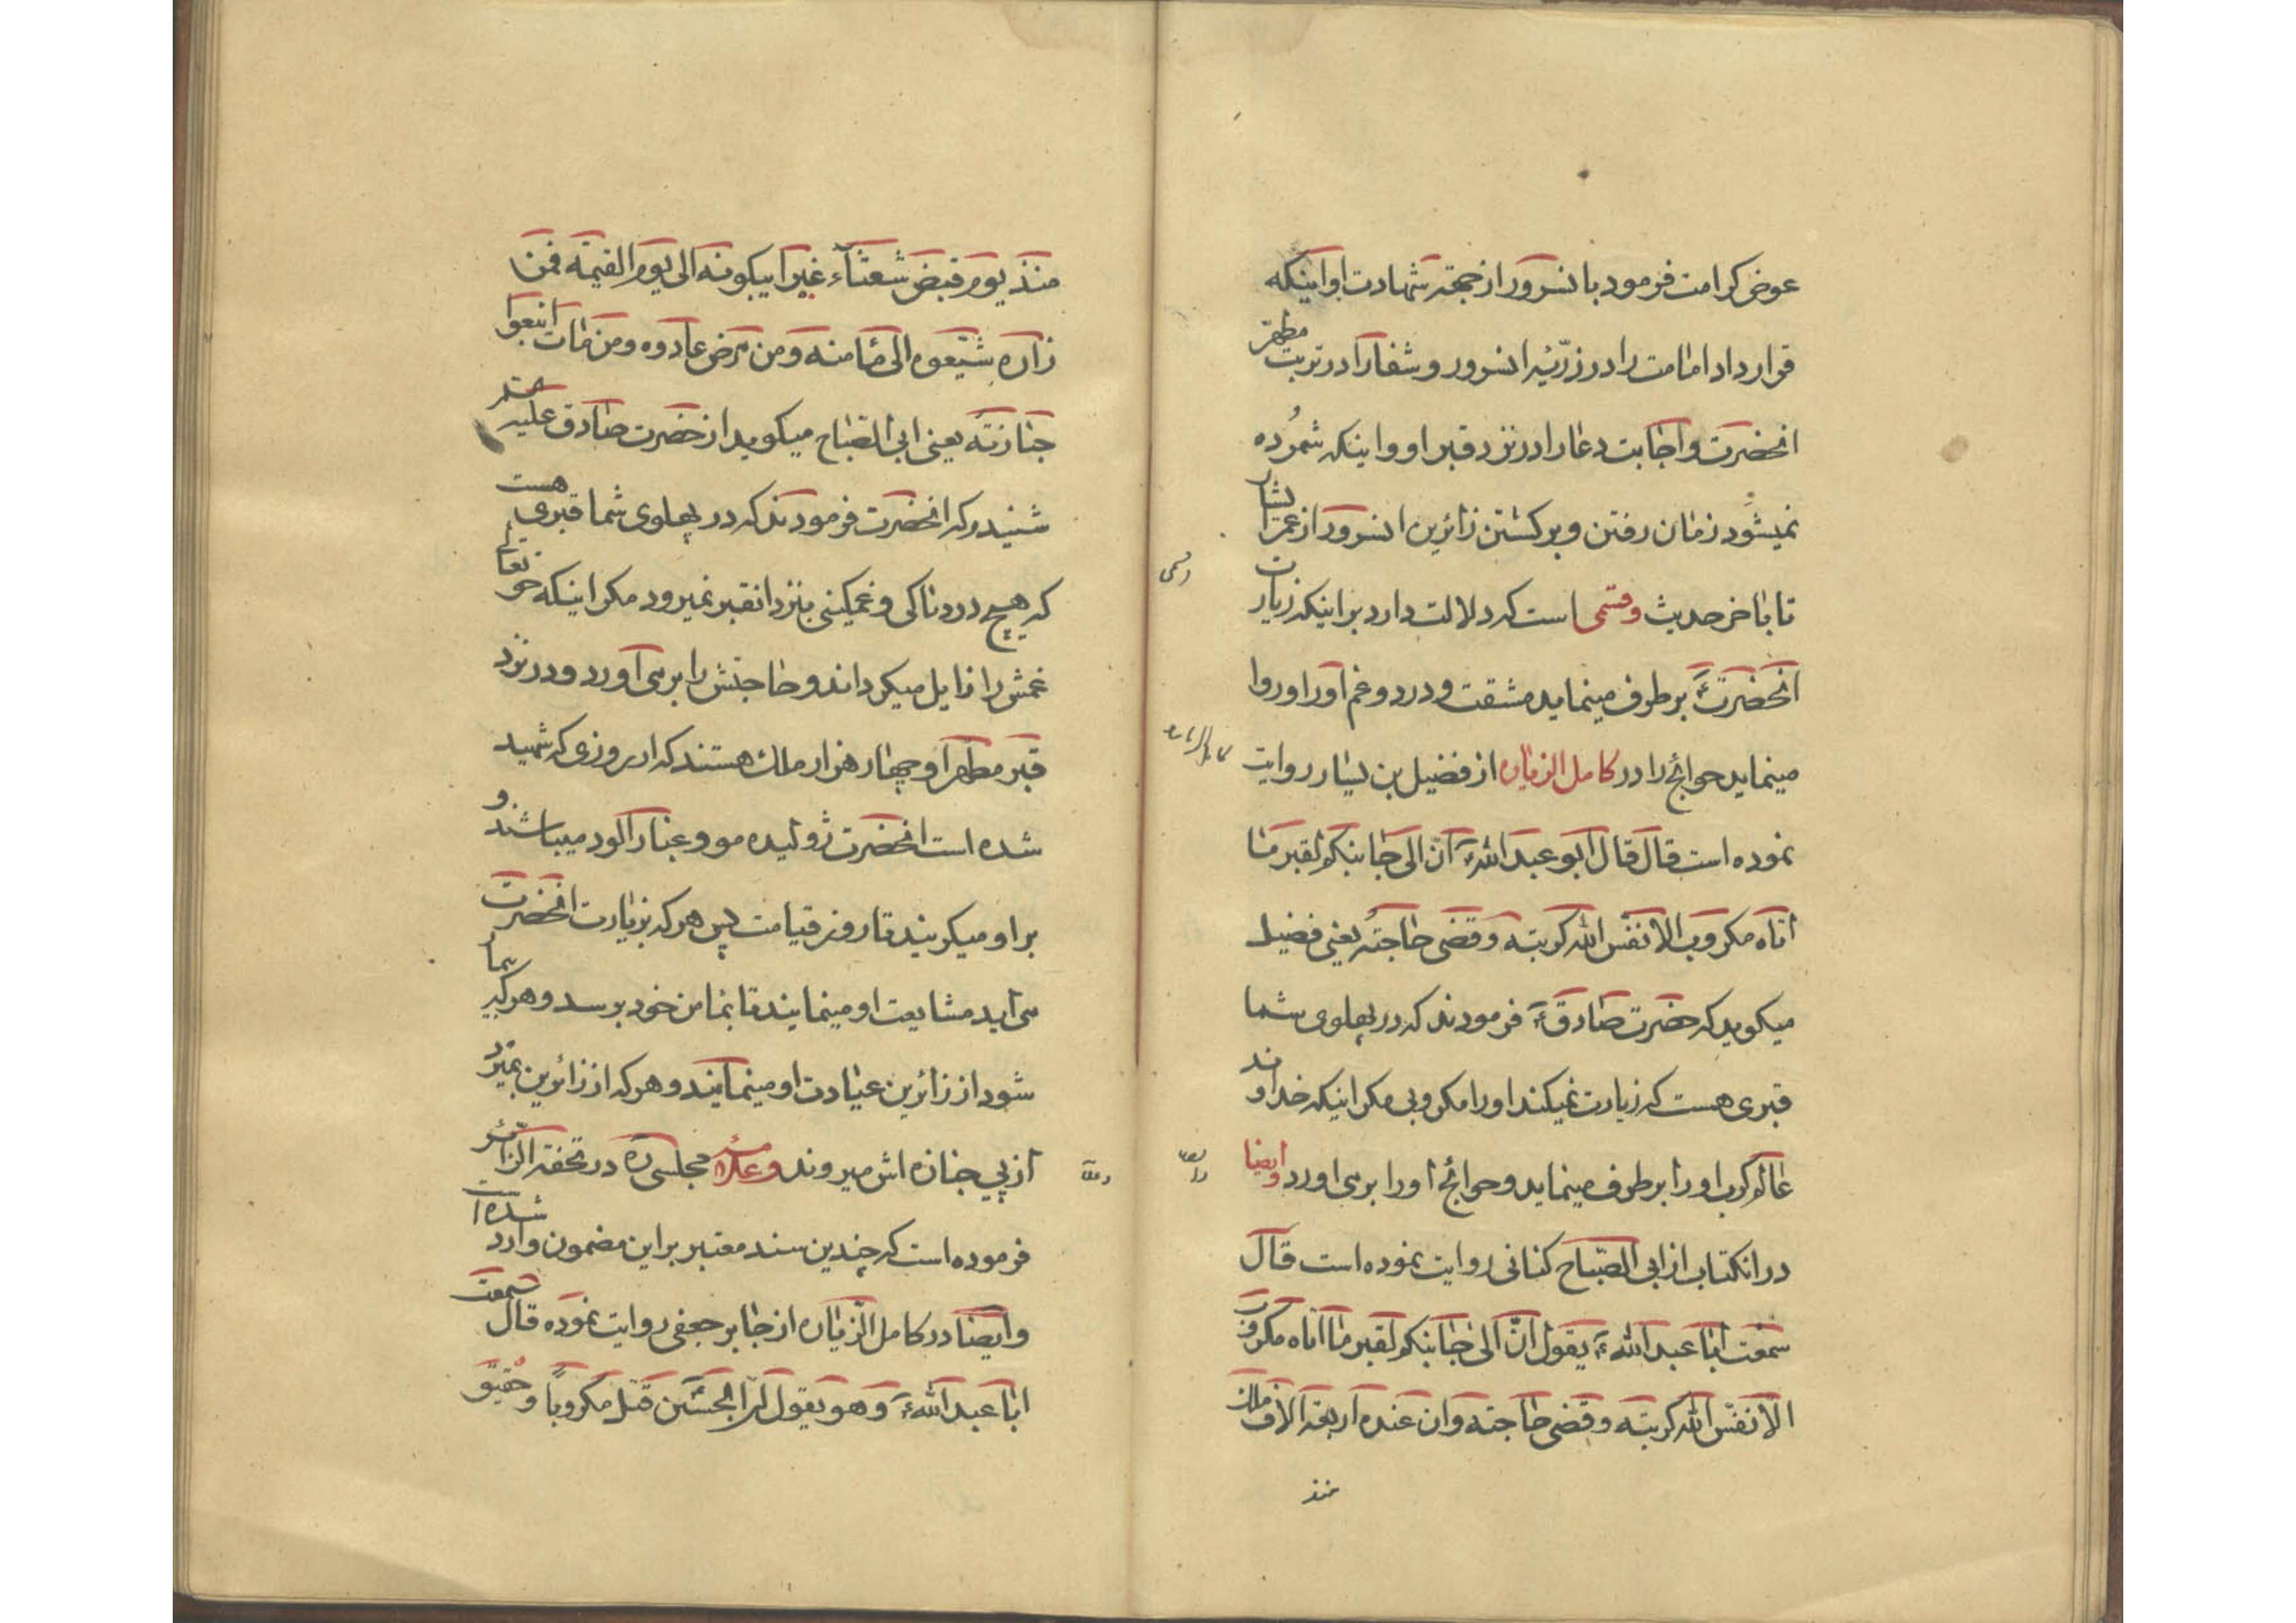 عوض کرامت فرمود بانسرور از جهتہ شهادت او اینکه
قرار داد امامت را در ذرّیّه انسرور و شفا را در تربت مطهّر
انحضرت و اجابت دعا را در نزد قبر او و اینکه شمرُده
نمیشود زمان رفتن و برکشتن زائرین انسرور از عمر ایشان
تا باخر حدیث و قسمی است که دلالت دارد بر اینکه زیارت
انحضرتؑ بر طرف مینماید مشقت و درد و غم او را و روا
مینماید حوائج را در کامل الزیاره از فضیل بن یسار روایت
نموده است قال قال ابو عبد اللهؑ انّ الی جانبکم لقبر ما
اتاه مکروب الا نفّس الله کربته و قضی حاجته یعنی فضیل
میکوید که حضرت صادقؑ فرمودند که در پهلوی شما
قبری هست که زیارت نمیکند او را مکروبی مکر اینکه خداوند
عالم کرب او را بر طرف مینماید و حوائج او را بر می اورد و ایضا
در انکتاب از ابی الصّباح کنانی روایت نموده است قال
سمعت ابا عبد اللهؑ یقول انّ الی جانبکم لقبر ما اتاه مکروب
الّا نفّس الله کربته و قضی حاجته و ان عنده اربعة الاف ملک
منذ
منذ یوم قبض شعثاء غبرا یبکونه الی یوم القیمة فمن
زاره شیّعوه الی مأمنه و من مرض عادوه و من مات اتبعوا
جنازته یعنی ابی الصّباح میکوید از حضرت صادق علیه
شنیدم که انحضرت فرمودند که در پهلوی شما قبری هست
که هیچ دردناکی و غمکینی بنزد انقبر نمیرود مکر اینکه حق تعالی
غمش را زایل میکرداند و حاجتش را بر می آورد و در نزد
قبر مطهر او چهار هزار ملک هستند که از روزی که شهید
شده است انحضرت ژولیده مو و غبار الود میباشند و
بر او میکریند تا روز قیامت پس هر که بزیارت انحضرت
می اید مشایعت او مینمایند تا بمامن خود برسد و هر که بیمار
شود از زائرین عیادت او مینمایند و هر که از زائرین بمیرد
از پی جنازه اش میروند و علامه مجلسی ره در تحفة الزّائر
فرموده است که چندین سند معتبر بر این مضمون وارد شده است
و ایضا در کامل الزیاره از جابر جعفی روایت نموده قال سمعت
ابا عبد اللهؑ و هو یقول انّ الحسین قتل مکروباً و حقیق